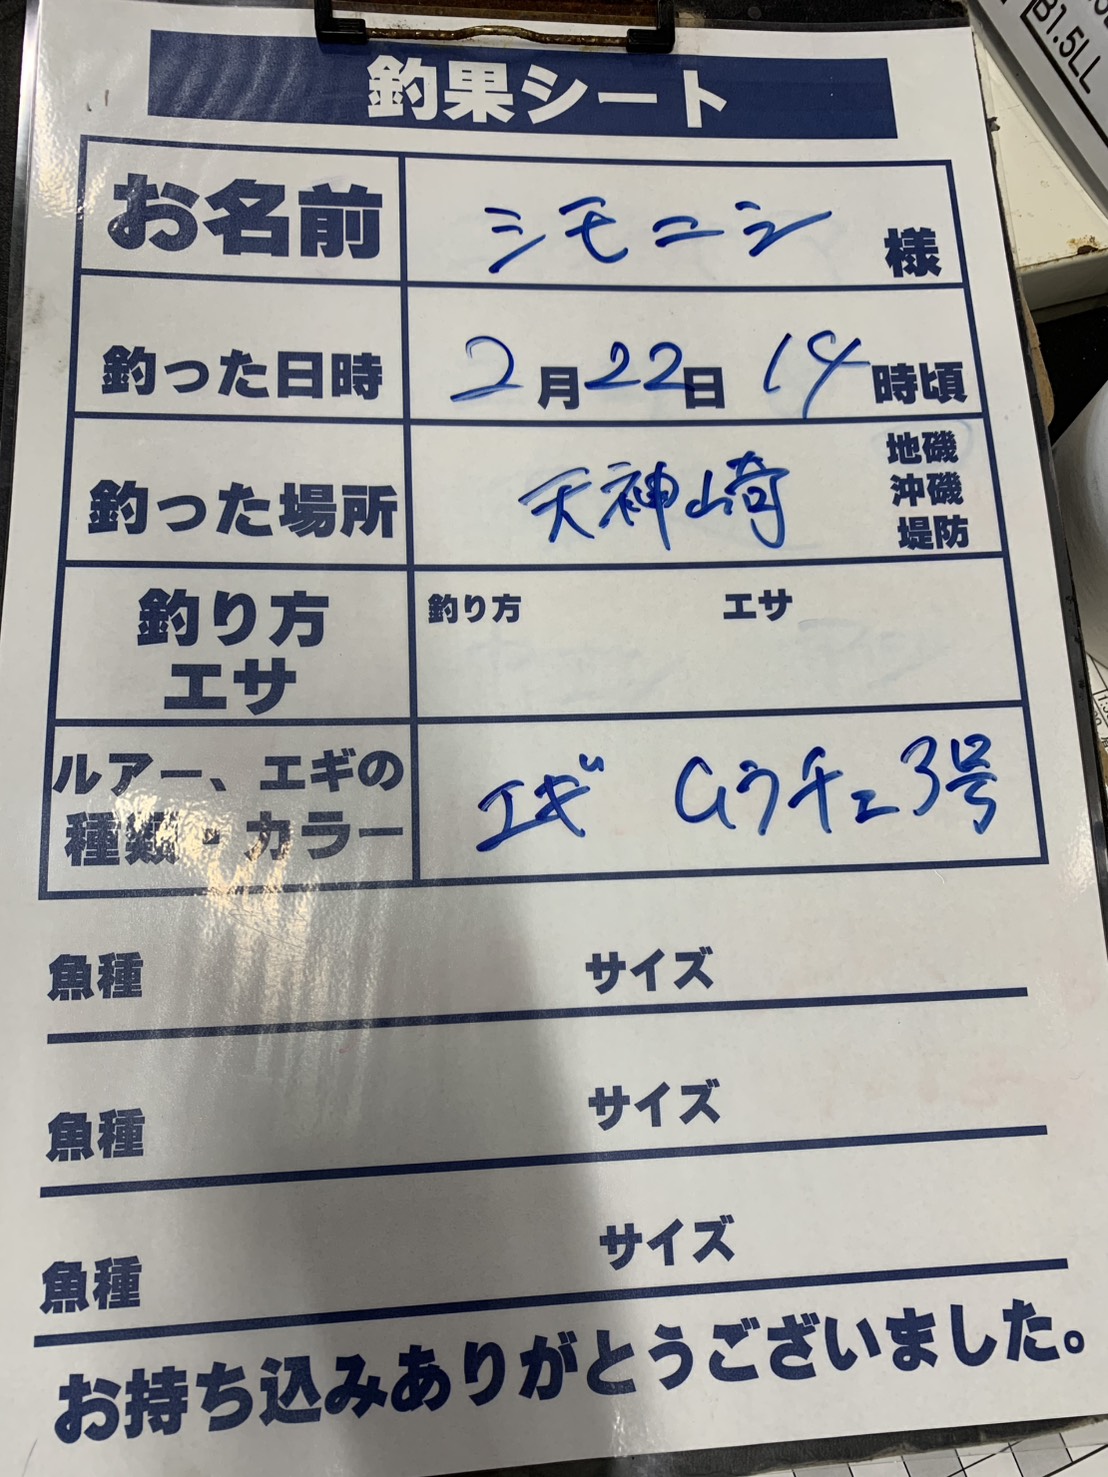 B1.5LL
釣果シート
お名前 シモニシ 様
釣った日時 2月22日 14時頃
釣った場所 天神崎 地磯
沖磯
堤防
釣り方 エサ 釣り方 エサ
ルアー、エギの種類・カラー エギ Gウチュ 3号
魚種 サイズ
魚種 サイズ
魚種 サイズ
お持ち込みありがとうございました。